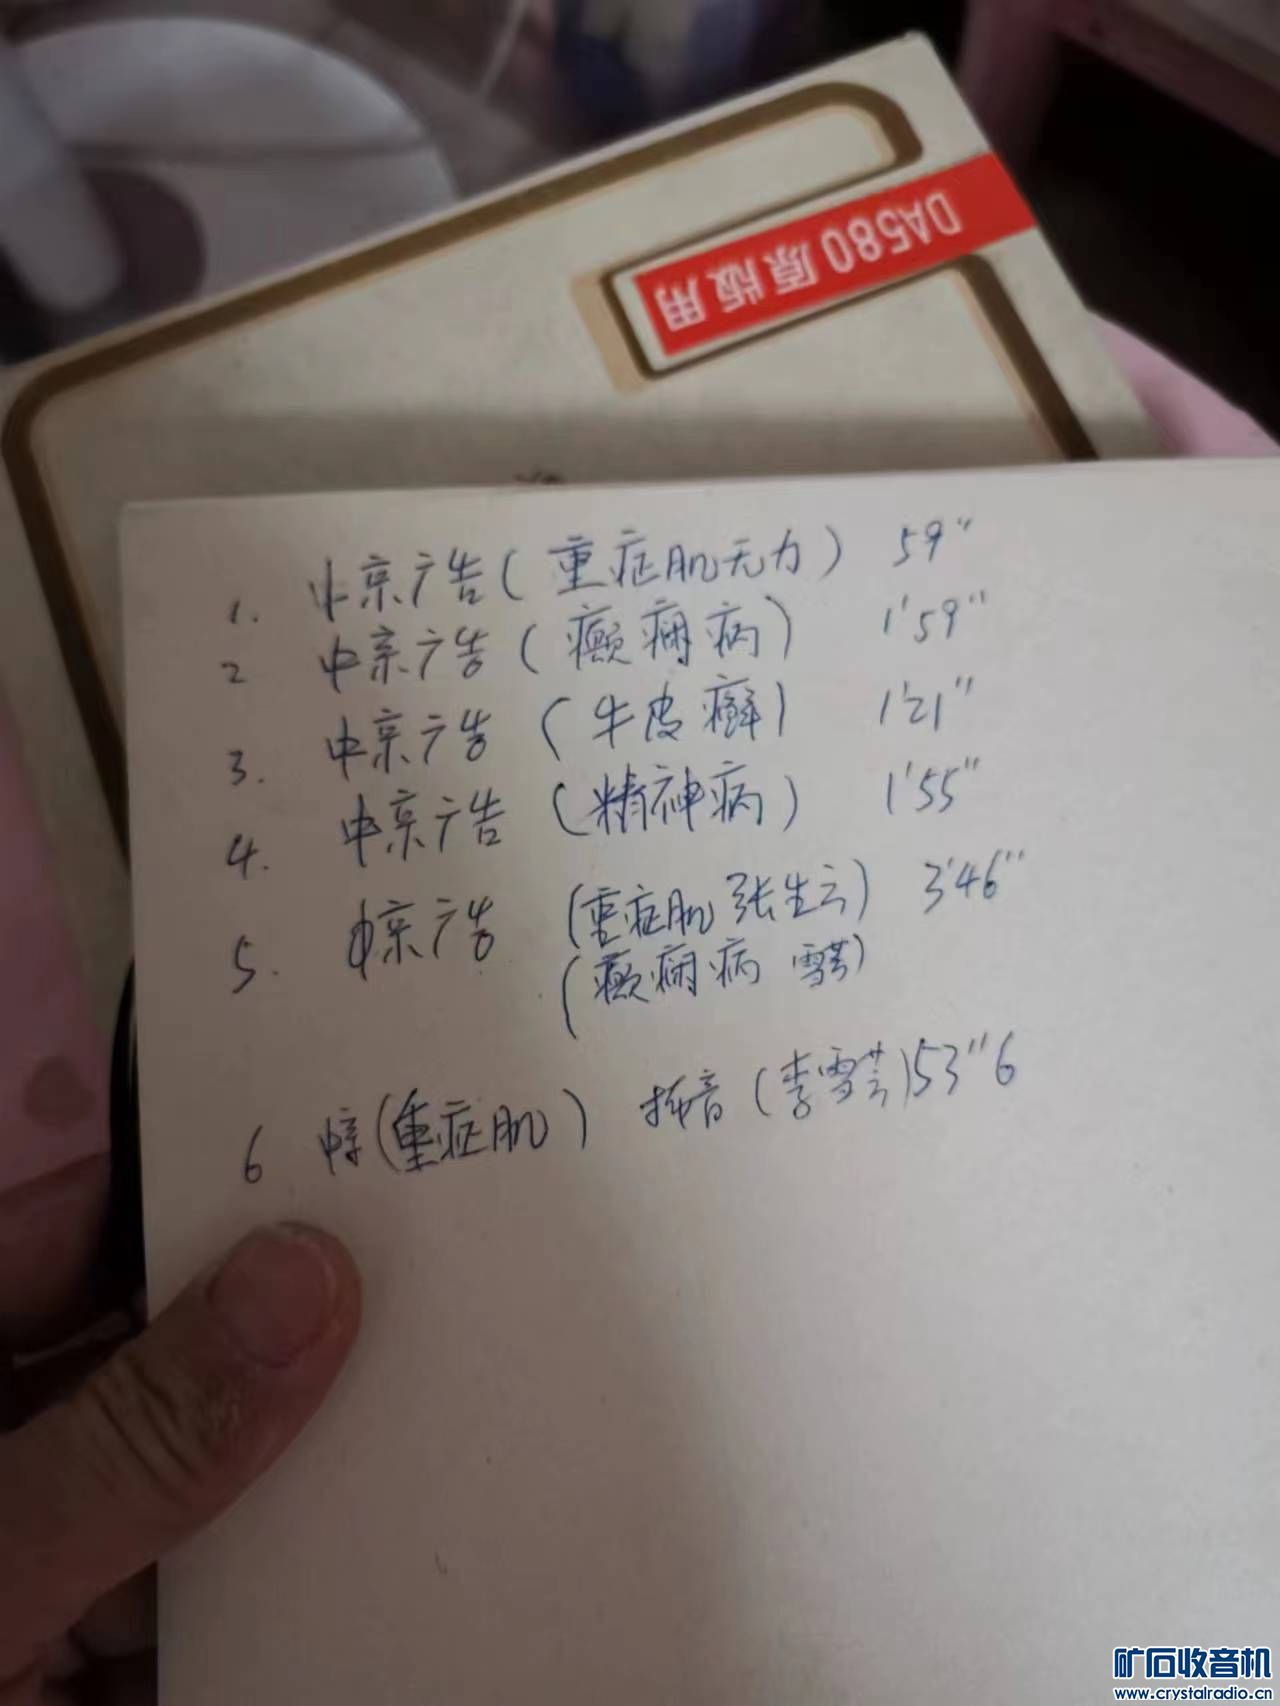 DA580原版用
1. 中京广告(重症肌无力) 59"
2 中京广告(癫痫病) 1'59"
3. 中京广告(牛皮癣) 1'21"
4. 中京广告(精神病) 1'55"
5. 中京广告(重症肌 张生云) 3'46"
(癫痫病 雪芸)
6 中京(重症肌) 抹音(李雪芸)53"6
矿石收音机
www.crystalradio.cn